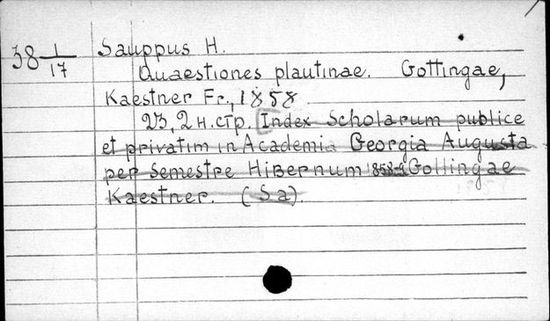 38 1/17
Sauppus H.
Quaestiones plautinae. Gottingae,
Kaestner Fr., 1858
23, 2 н.стр. [Index Scholarum publice
et privatim in Academia Georgia Augusta
per semestre Hibernum 1858-9 Gottingae
Kaestner. (Sa).